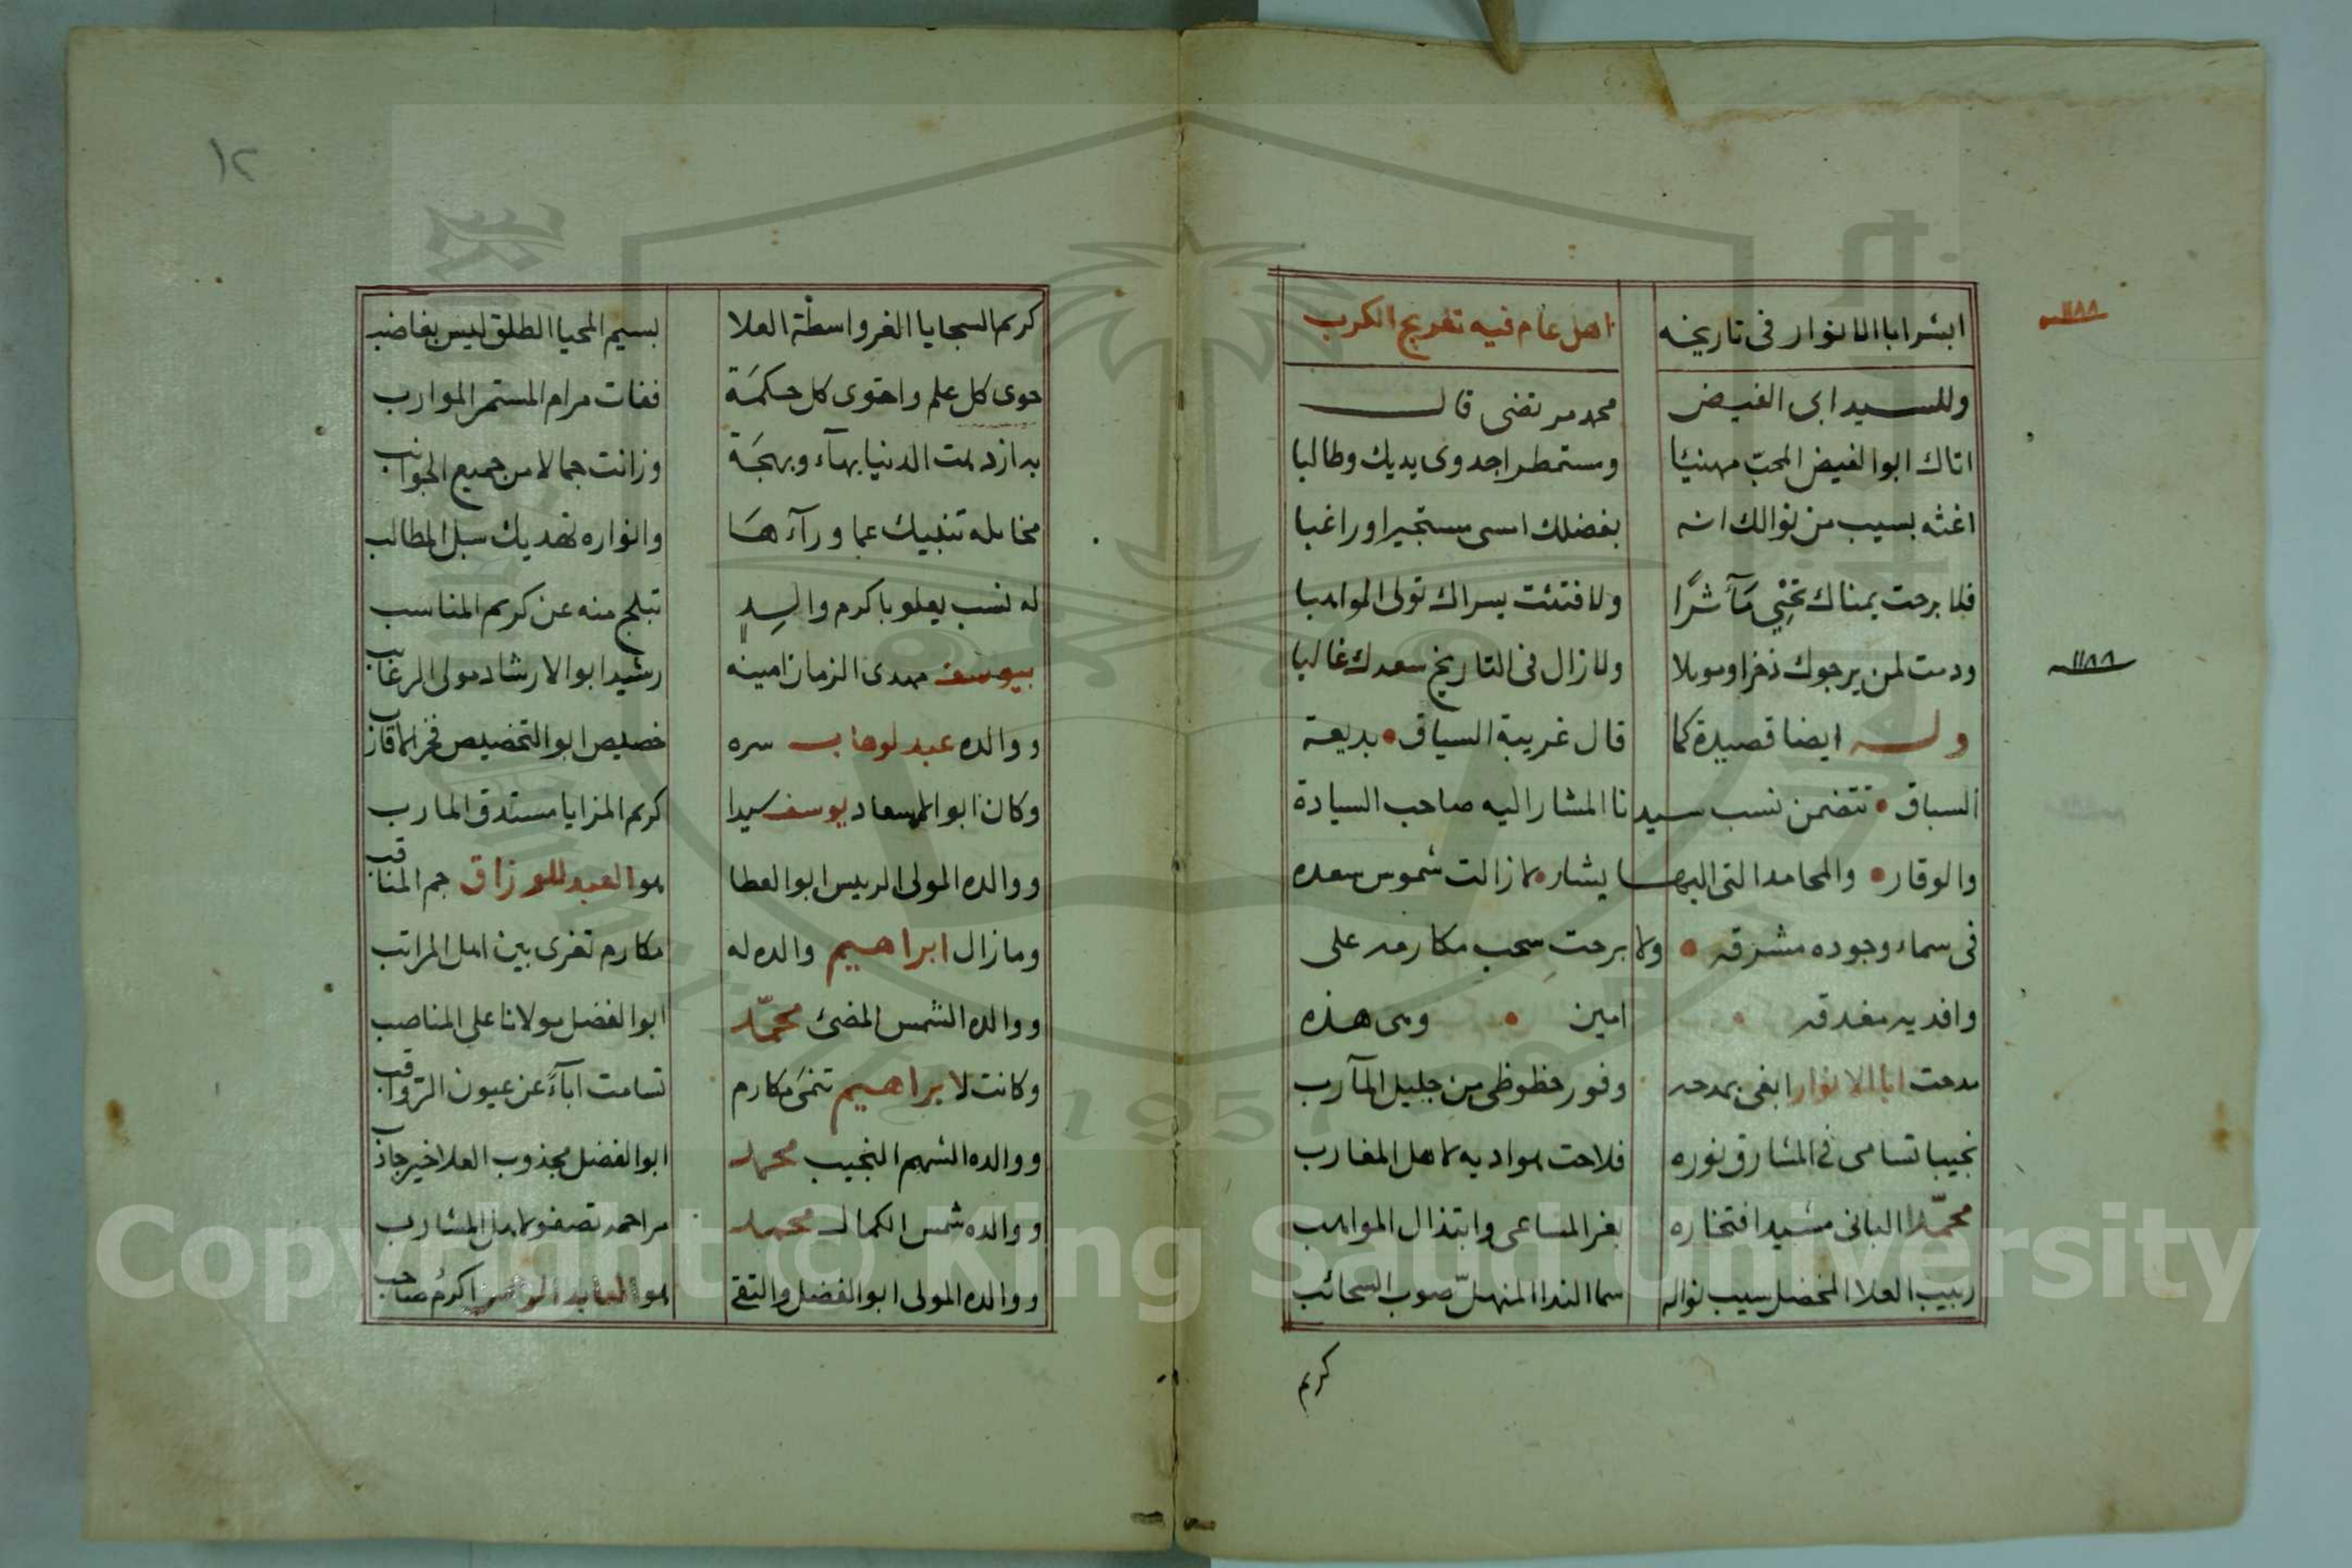 ابشر ابا الانوار فى تاريخه اهل عام فيه تفريج الكرب
١١٨٨
وللسيد ابى الفيض محمد مرتضى قال
اتاك ابو الفيض المحب مهنيًا ومستمطرا جدوى يديك وطالبا
اغثه بسيب من نوالك انه بفضلك امسى مستجيرا وراغبا
فلا برحت يمناك تحيي مآثرًا ولا فتئت يسراك تولى المواهبا
ودمت لمن يرجوك ذخرا وموئلا ولا زال فى التاريخ سعدك غالبا
١١٨٨
وله ايضا قصيدة كما قال غريبة السياق • بديعة
السباق • تتضمن نسب سيدنا المشار اليه صاحب السيادة
والوقار • والمحامد التى اليها يشار • لا زالت شموس سعده
فى سماء وجوده مشرقه • ولا برحت سحب مكارمه على
وافديه مغدقه • امين • وهى هذه
مدحت ابا الانوار ابغى بمدحه وفور حظوظى من جليل المآرب
نجيبا تسامى فى المشارق نوره فلاحت هواديه لاهل المغارب
محمّدا البانى مشيد افتخاره بغر المساعى وابتذال المواهب
ربيب العلا المخضل سيب نواله سما الندا المنهلّ صوب السحائب
كريم
١٢
كريم السجايا الغر واسطة العلا بسيم المحيا الطلق ليس بغاضب
حوى كل علم واحتوى كل حكمة ففات مرام المستمر الموارب
به ازدهت الدنيا بهاء وبهجة وزانت جمالا من جميع الجوانب
مخايله تنبيك عما ورآءها وانواره تهديك سبل المطالب
له نسب يعلو باكرم والدٍ تبلج منه عن كريم المناسب
بيوسف مهدى الزمان امينه رشيد ابو الارشاد مولى الرغايب
ووالده عبد لوهاب سره خصيص ابو التخصيص فخر الاقارب
وكان ابو الاسعاد يوسف سيدا كريم المزايا مستدق المارب
ووالده المولى الرييس ابو العطا هو العبد للرزاق جم المناقب
وما زال ابراهيم والده له مكارم تغرى بين اهل المراتب
ووالده الشمس المضئ محمّد ابو الفضل مولانا على المناصب
وكانت لابراهيم تنمى مكارم تسامت اباءً عن عيون الرواقب
ووالده الشهم النجيب محمد ابو الفضل مجذوب العلا خير جاذب
ووالده شمس الكمال محمد مراحمه تصفو لاهل المشارب
ووالده المولى ابو الفضل والتقى هو اكرم صاحب
Copyright © King Saud University
1957